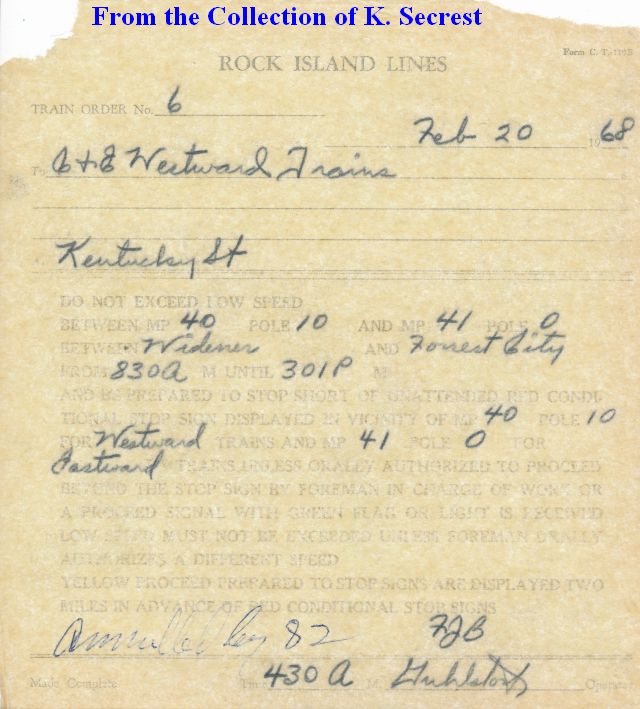 From the Collection of K. Secrest
Form C. T.-119B
ROCK ISLAND LINES
TRAIN ORDER No. 6
Feb 20 1968
To C+E Westward Trains
Kentucky St
DO NOT EXCEED LOW SPEED
BETWEEN MP 40 POLE 10 AND MP 41 POLE 0
BETWEEN Widener AND Forrest City
FROM 830A M UNTIL 301P M
AND BE PREPARED TO STOP SHORT OF UNATTENDED RED CONDI-
TIONAL STOP SIGN DISPLAYED IN VICINITY OF MP 40 POLE 10
FOR Westward TRAINS AND MP 41 POLE 0 FOR
Eastward TRAINS UNLESS ORALLY AUTHORIZED TO PROCEED
BEYOND THE STOP SIGN BY FOREMAN IN CHARGE OF WORK OR
A PROCEED SIGNAL WITH GREEN FLAG OR LIGHT IS RECEIVED
LOW SPEED MUST NOT BE EXCEEDED UNLESS FOREMAN ORALLY
AUTHORIZES A DIFFERENT SPEED
YELLOW PROCEED PREPARED TO STOP SIGNS ARE DISPLAYED TWO
MILES IN ADVANCE OF RED CONDITIONAL STOP SIGNS
Annulled by 82 FJB
Made Complete Time 430 A M Operator